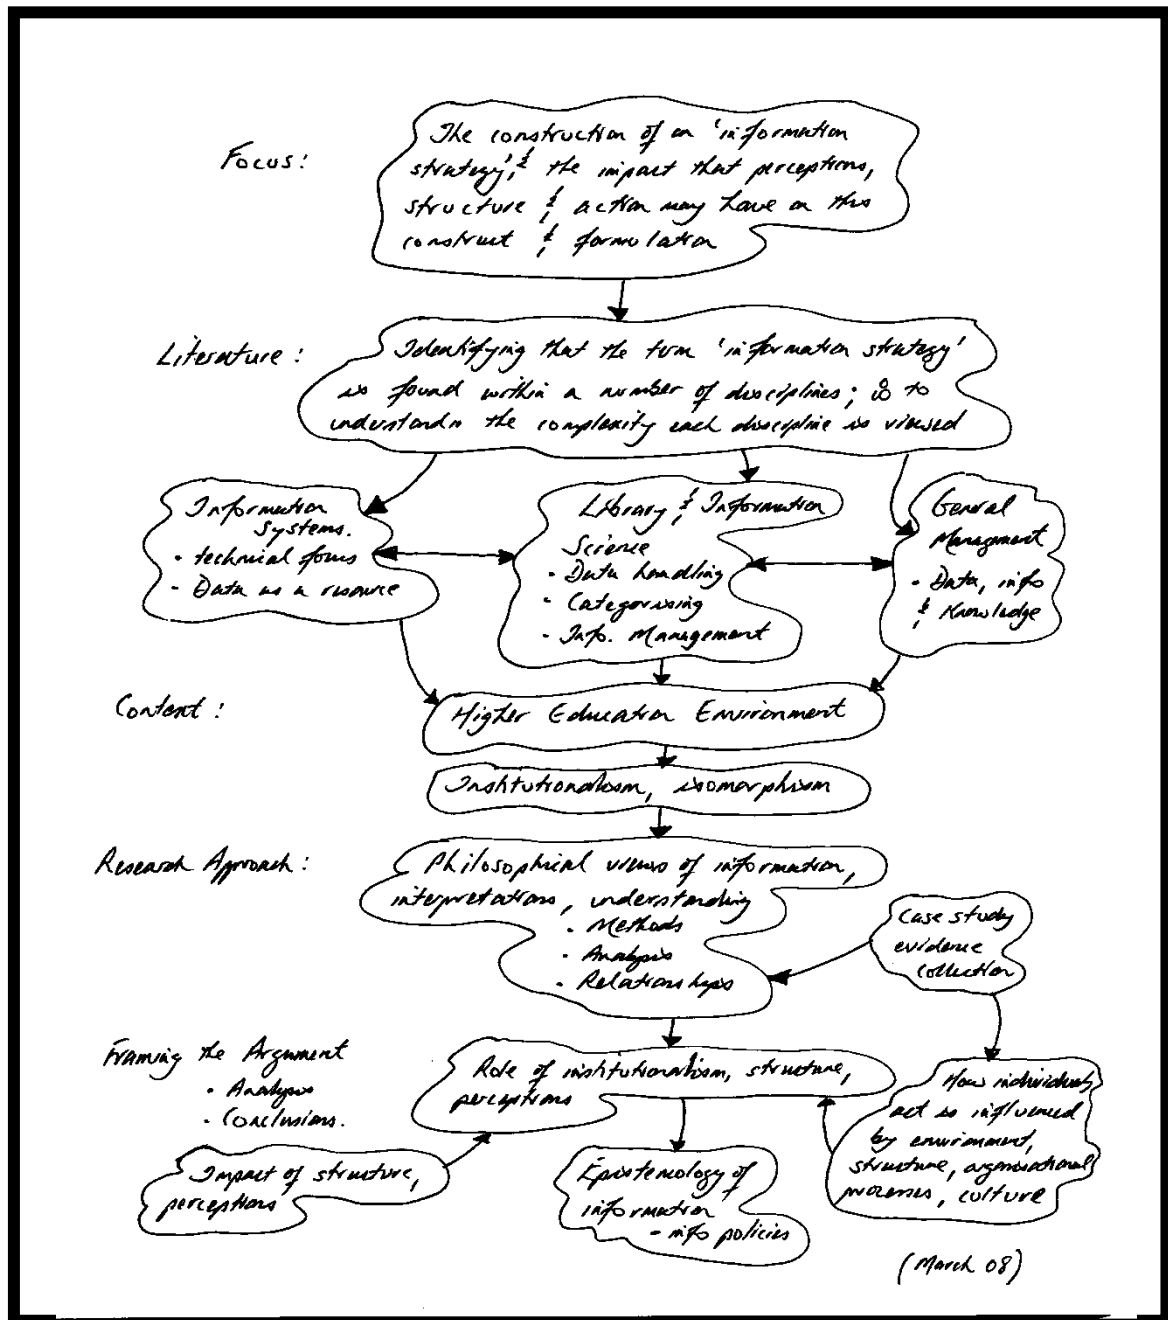 Focus:
The construction of an 'information
strategy', & the impact that perceptions,
structure & action may have on this
construct & formulation
Literature:
Identifying that the term 'information strategy'
is found within a number of disciplines; to
understand the complexity each discipline is viewed
Information
Systems.
- technical focus
- Data as a resource
Library & Information
Science
- Data handling
- Categorising
- Info. Management
General
Management
- Data, info
& Knowledge
Content:
Higher Education Environment
Institutionalism, isomorphism
Research Approach:
Philosophical views of information,
interpretations, understanding
- Methods
- Analysis
- Relationships
Case study
evidence
collection
Framing the Argument
- Analysis
- Conclusions.
Role of institutionalism, structure,
perceptions
How individuals
act is influenced
by environment,
structure, organisational
processes, culture
Impact of structure,
perceptions
Epistemology of
information
- info policies
(March 08)